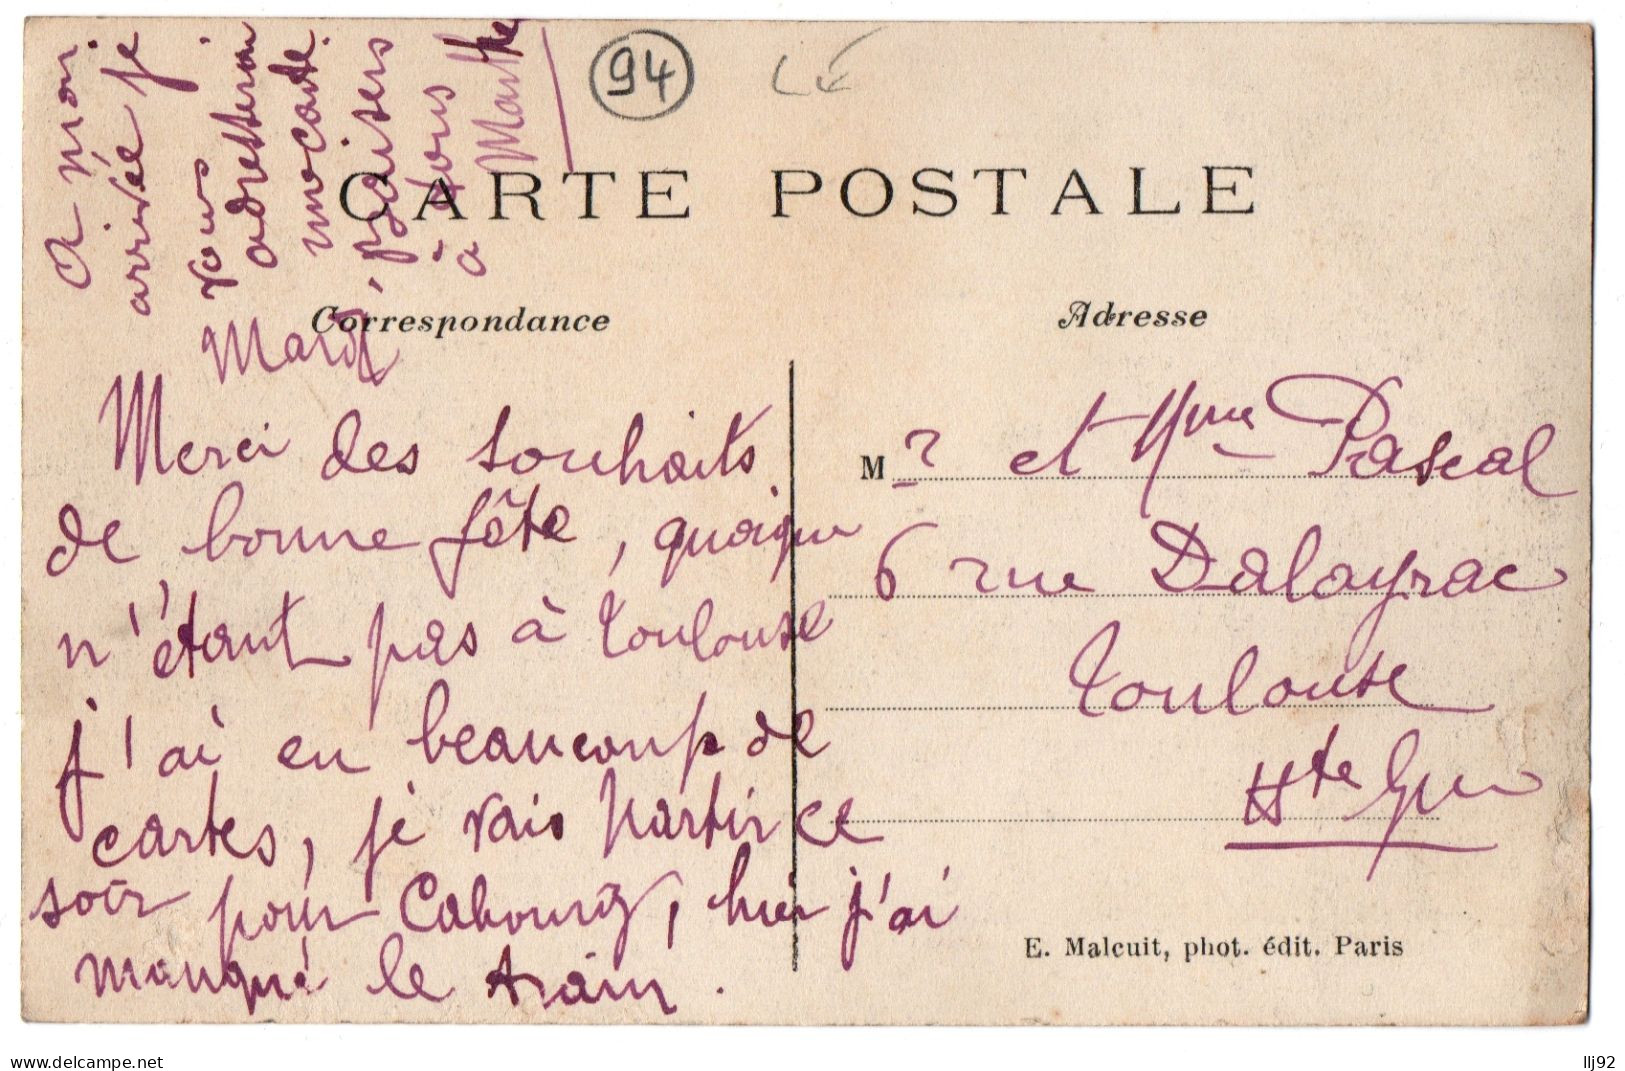 94
CARTE POSTALE
Correspondance
Adresse
Mardi
Merci des souhaits
de bonne fête, quoique
n'étant pas à Toulouse
j'ai eu beaucoup de
cartes, je vais partir ce
soir pour Cabourg, hier j'ai
manqué le train.
A mon
arrivée je
vous
adresserai
une carte.
Baisers
à tous
à Marthe
Mr et Mme Pascal
6 rue Dalayrac
Toulouse
Hte Gne
E. Malcuit, phot. édit. Paris
www.delcampe.net
llj92